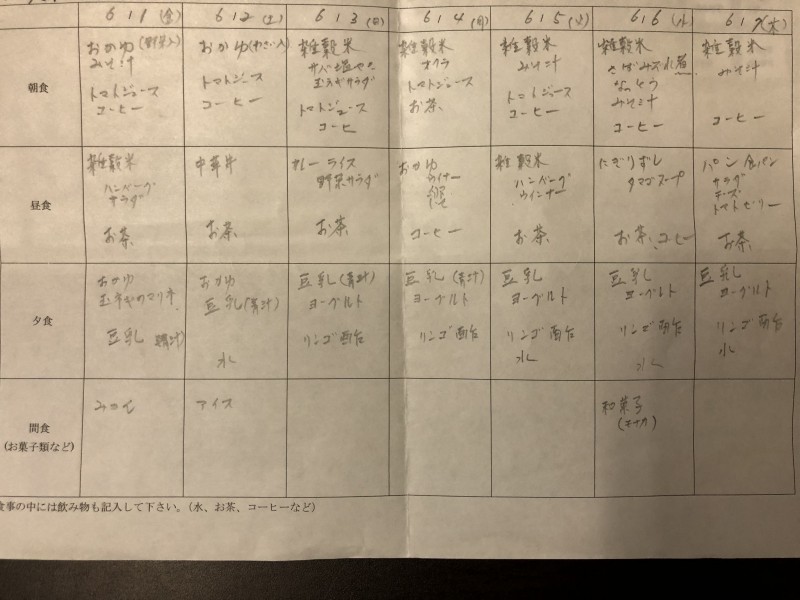 6/1(金)
6/2(土)
6/3(日)
6/4(月)
6/5(火)
6/6(水)
6/7(木)
朝食
おかゆ(野菜入)
みそ汁
トマトジュース
コーヒー
おかゆ(わさい入)
トマトジュース
コーヒー
雑穀米
サバ塩やき
玉ネギサラダ
トマトジュース
コーヒ
雑穀米
オクラ
トマトジュース
お茶
雑穀米
みそ汁
トマトジュース
コーヒー
雑穀米
さばみぞれ煮
なっとう
みそ汁
コーヒー
雑穀米
みそ汁
コーヒー
昼食
雑穀米
ハンバーグ
サラダ
お茶
中華丼
お茶
カレーライス
野菜サラダ
お茶
おかゆ
ウイナー
コーヒー
雑穀米
ハンバーグ
ウインナー
お茶
にぎりずし
タマゴスープ
お茶、コーヒー
パン 食パン
サラダ
チーズ
トマトゼリー
お茶
夕食
おかゆ
玉ネギのマリネ
豆乳 (青汁)
おかゆ
豆乳(青汁)
水
豆乳(青汁)
ヨーグルト
リンゴ酢
豆乳(青汁)
ヨーグルト
リンゴ酢
豆乳
ヨーグルト
リンゴ酢
水
豆乳
ヨーグルト
リンゴ酢
水
豆乳
ヨーグルト
リンゴ酢
水
間食
(お菓子類など)
みかん
アイス
和菓子
(モナカ)
食事の中には飲み物も記入して下さい。(水、お茶、コーヒーなど)